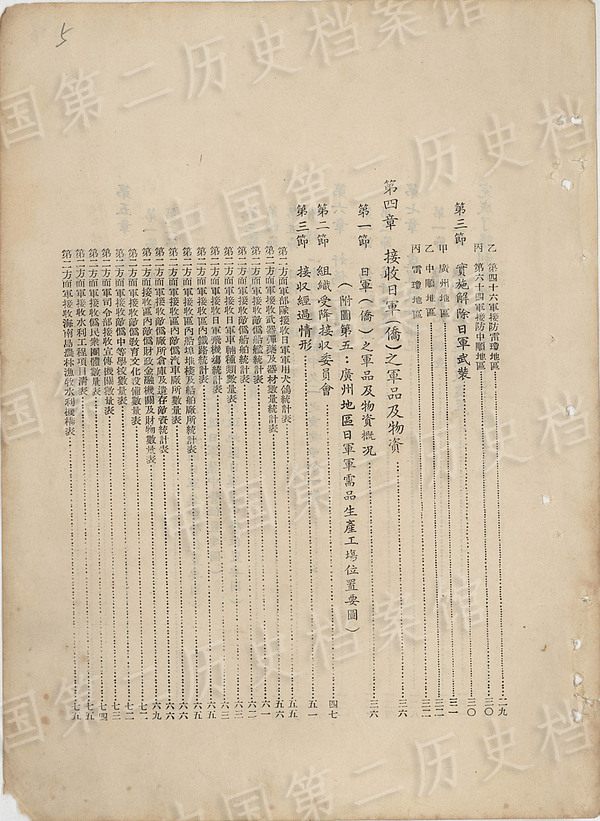 5
乙 第四十六軍接防雷瓊地區 二九
丙 第六十四軍接防中順地區 三〇
第三節 實施解除日軍武裝 三〇
甲 廣州地區 三一
乙 中順地區 三二
丙 雷瓊地區 三二
第四章 接收日軍(僑)之軍品及物資 三六
第一節 日軍(僑)之軍品及物資概況 三六
(附圖第五:廣州地區日軍軍需品生產工場位置要圖)
第二節 組織受降接收委員會 四七
第三節 接收經過情形 五一
第二方面軍部隊接收日軍軍用犬鴿統計表 五五
第二方面軍接收武器彈藥及器材數量統計表 五六
第二方面軍接收敵僞船艦統計表 六一
第二方面軍接收敵僞船舶統計表 六二
第二方面軍接收日軍車輛種類數量表 六三
第二方面軍接收日軍飛機場統計表 六五
第二方面接收區內鐵路統計表 六五
第二方面接收區內船埠棧及船舶廠所統計表 六六
第二方面接收區內敵僞汽車廠所數量表 六六
第二方面軍接收敵僞廠所倉庫及遺存敵資統計表 六九
第二方面接收區內敵僞財政金融機關及財物數量表 七二
第二方面軍接收敵僞教育文化設備數量表 七二
第二方面軍接收敵僞中等學校數量表 七三
第二方面軍司令部接收宣傳機關數量表 七四
第二方面軍接收僞民衆團體數量表 七五
第二方面軍接收水利工程項目清表
第二方面軍接收海南島農林漁牧水利機構表 七五
中国第二历史档案馆